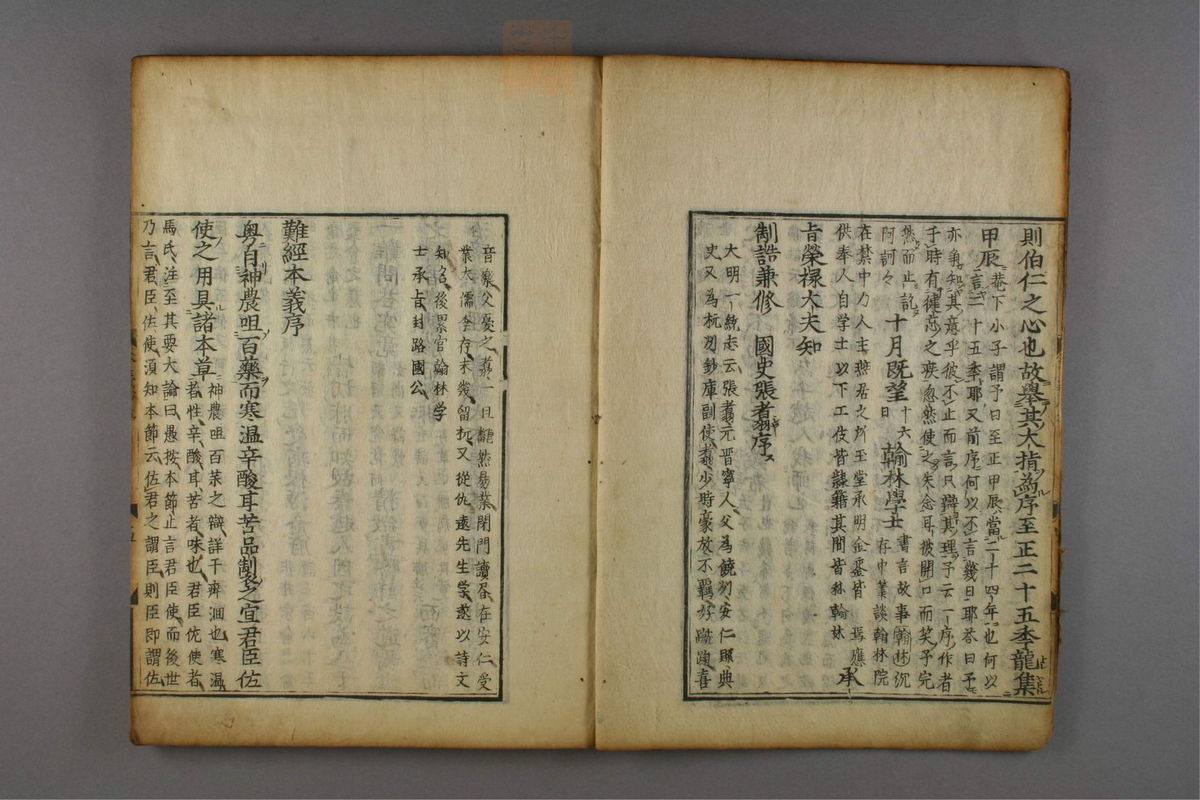 則伯仁之心也故舉其大指爲序至正二十五季龍集
甲辰巷下小子謂予曰至正甲辰當二十四年也何以
言二十五季耶又前序何以不言幾日耶荅曰予
亦知其意乎彼不止而言只辯其理予云一序作者
于時有健忘之疾忽然使之失念耳彼開口而笑予完
然而止
阿訶々十月既望十六日翰林學士書言故事翰林沉
在禁中力人主燕居之所玉堂承明金銮皆
供奉人自学士以下工伎皆隷籍其間皆称翰林
承
旨榮祿大夫知
制誥兼修國史張翥序
大明一統志云張翥元晋寧人父為饒州安仁縣典
史又為杭州鈔庫副使翥少時豪放不羈好蹴踘喜
音樂父憂之翥一旦翻然易業閉門讀昼在安仁受
業大儒李存未幾留杭又從仇遠先生学遂以詩文
知名後累官翰林学
士承旨封路國公
難經本義序
粤自神農咀百藥而寒温辛酸甘苦品制之宜君臣佐
使之用具諸本草神農咀百薬之辯詳于齊洄也寒温
者性辛酸甘苦者味也君臣佐使者
馬氏注至其要大論曰愚按本節止言君臣使而後世
乃言君臣佐使須知本節云佐君之謂臣則臣即謂佐